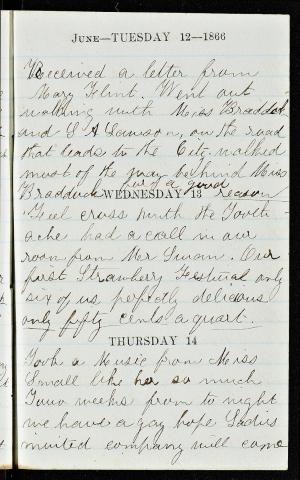 JUNE—TUESDAY 12—1866
Received a letter from
Mary Flint. Went out
walking with Miss Braddock
and S A Lawson, on the road
that leads to the City walked
most of the way behind Miss
Bradduck for a good reason
WEDNESDAY 13
Feel cross with the Tooth
ache had a call in our
room from Mr Swain. Our
first Strawberry Festival only
six of us perfectly delicious
only fifty cents a quart.
THURSDAY 14
Took a Music from Miss
Small like her so much
Two weeks from to night
we have a gay hope Ladies
invited company will come